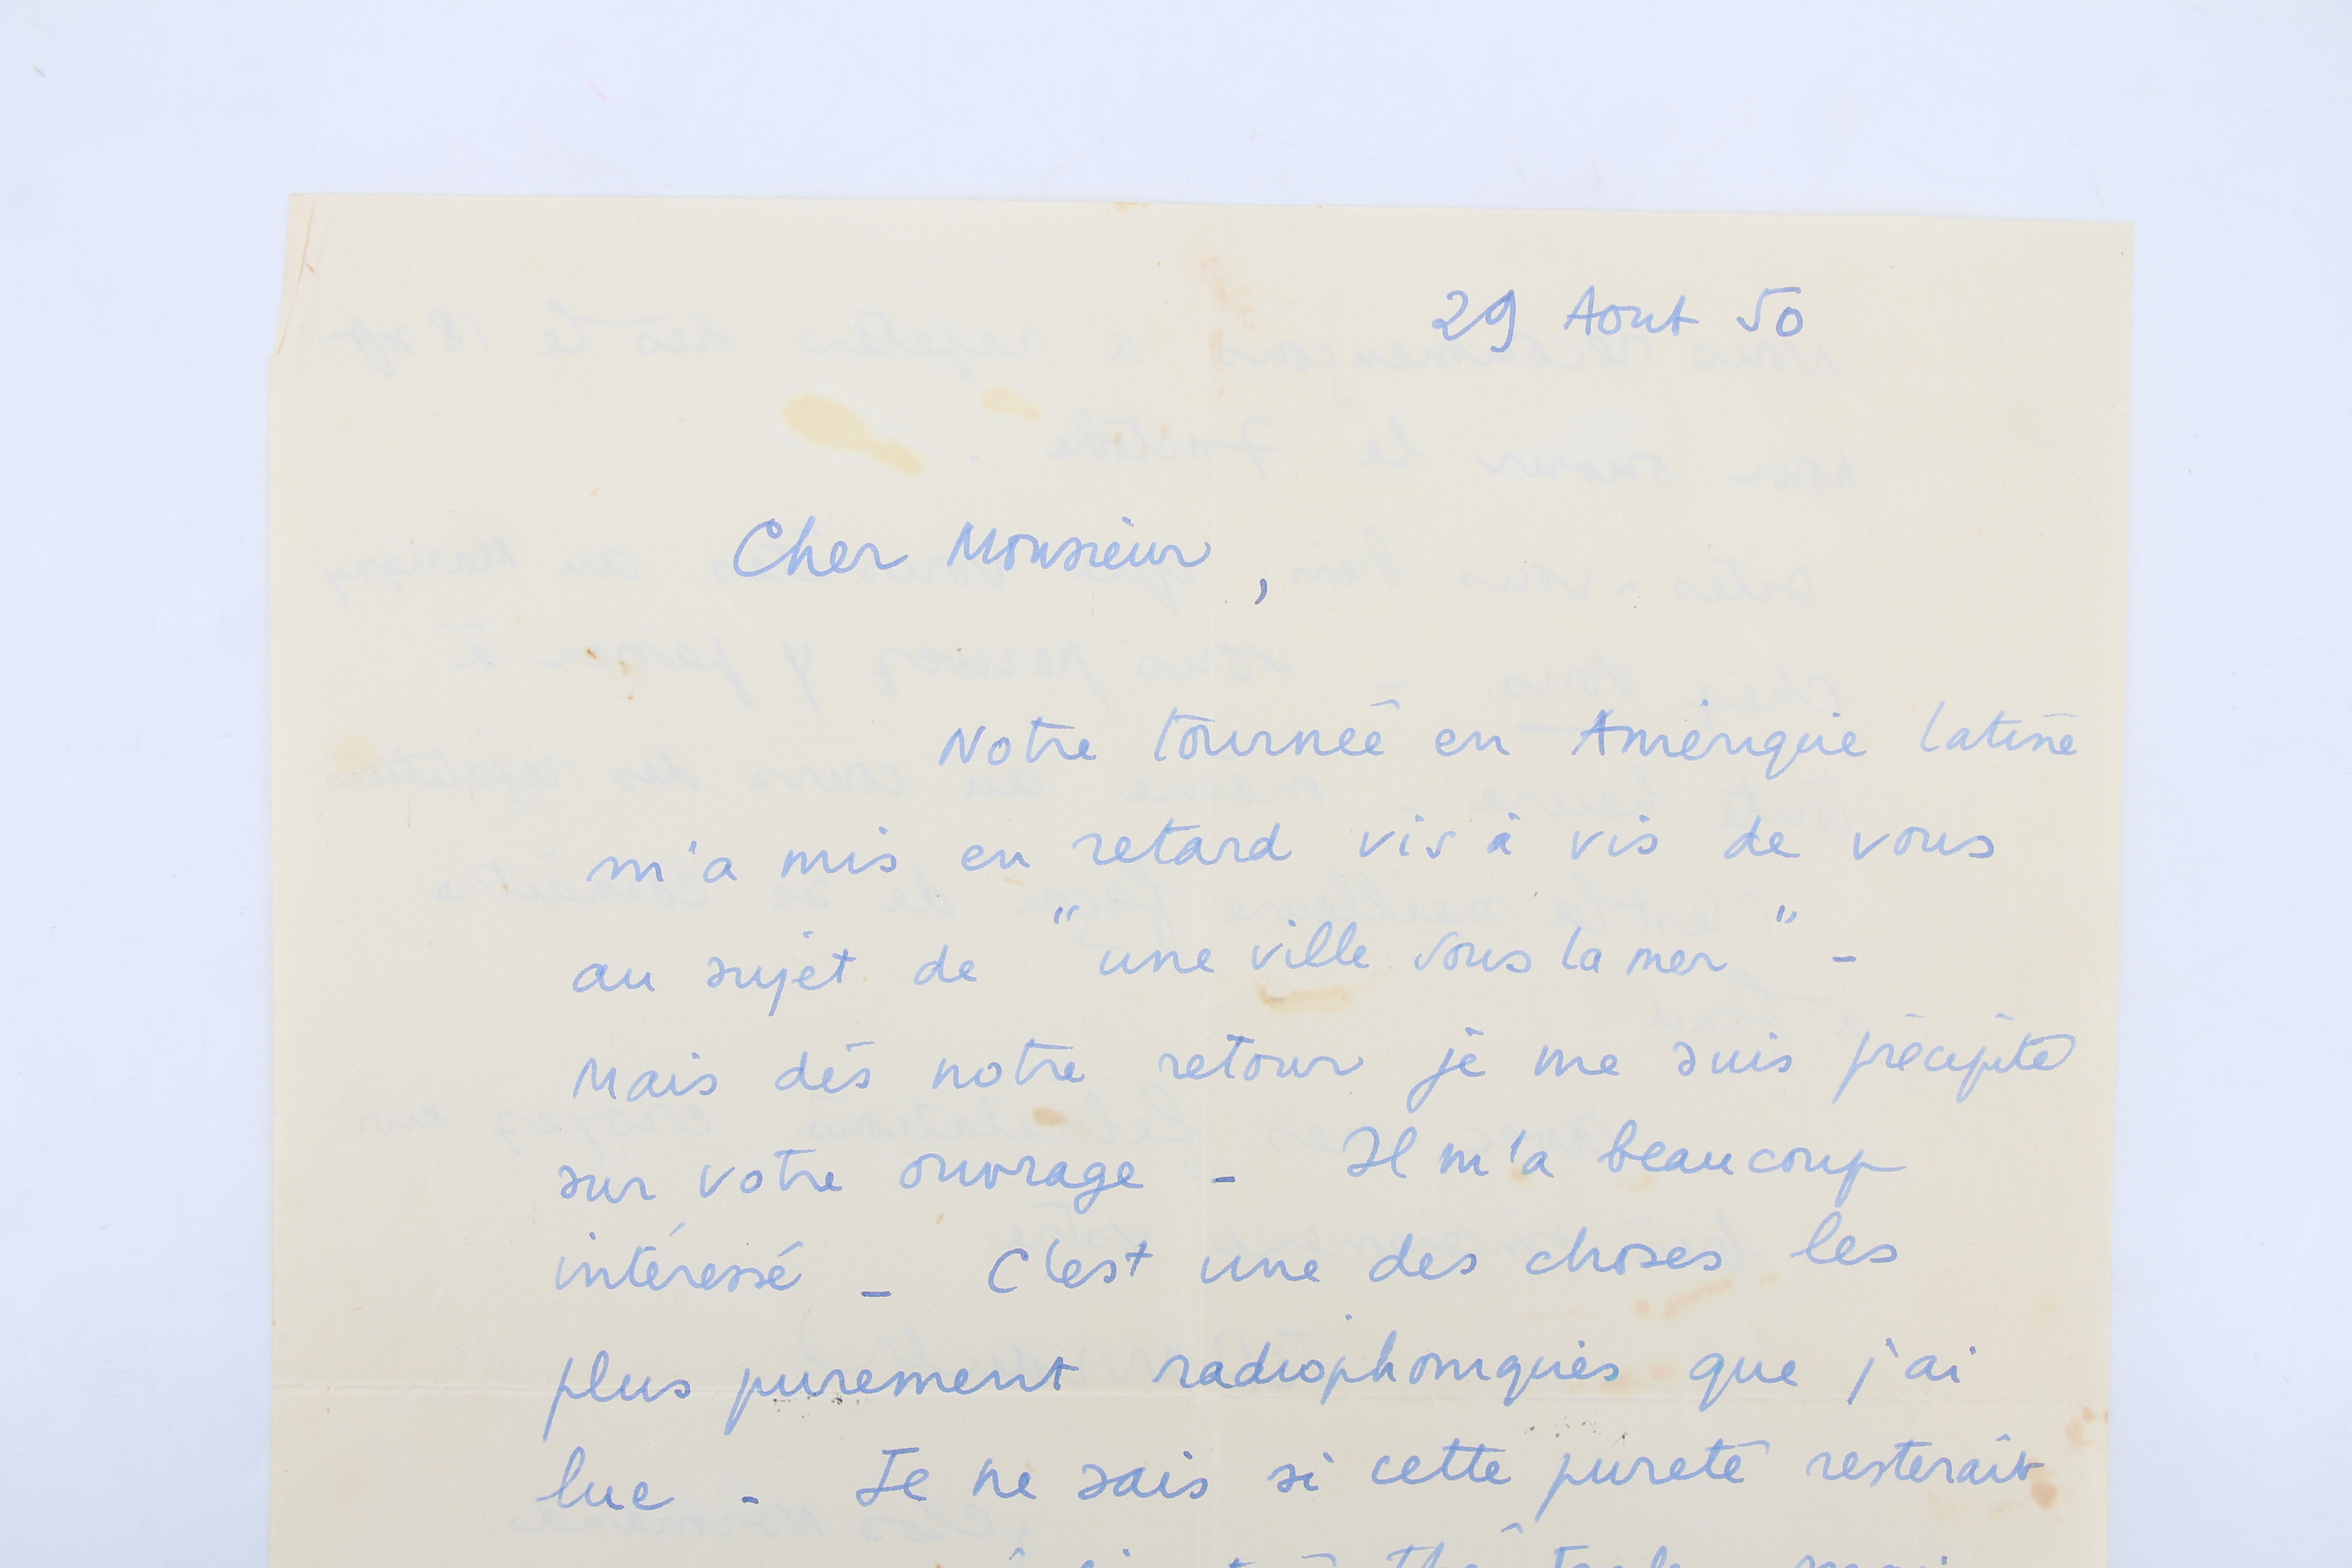 29 Aout 50
Cher Monsieur,
Notre tournée en Amérique latine
m'a mis en retard vis à vis de vous
au sujet de "une ville sous la mer" -
Mais dès notre retour je me suis précipité
sur votre ouvrage - Il m'a beaucoup
intéressé - C'est une des choses les
plus purement radiophoniques que j'ai
lue - Je ne sais si cette pureté resterait